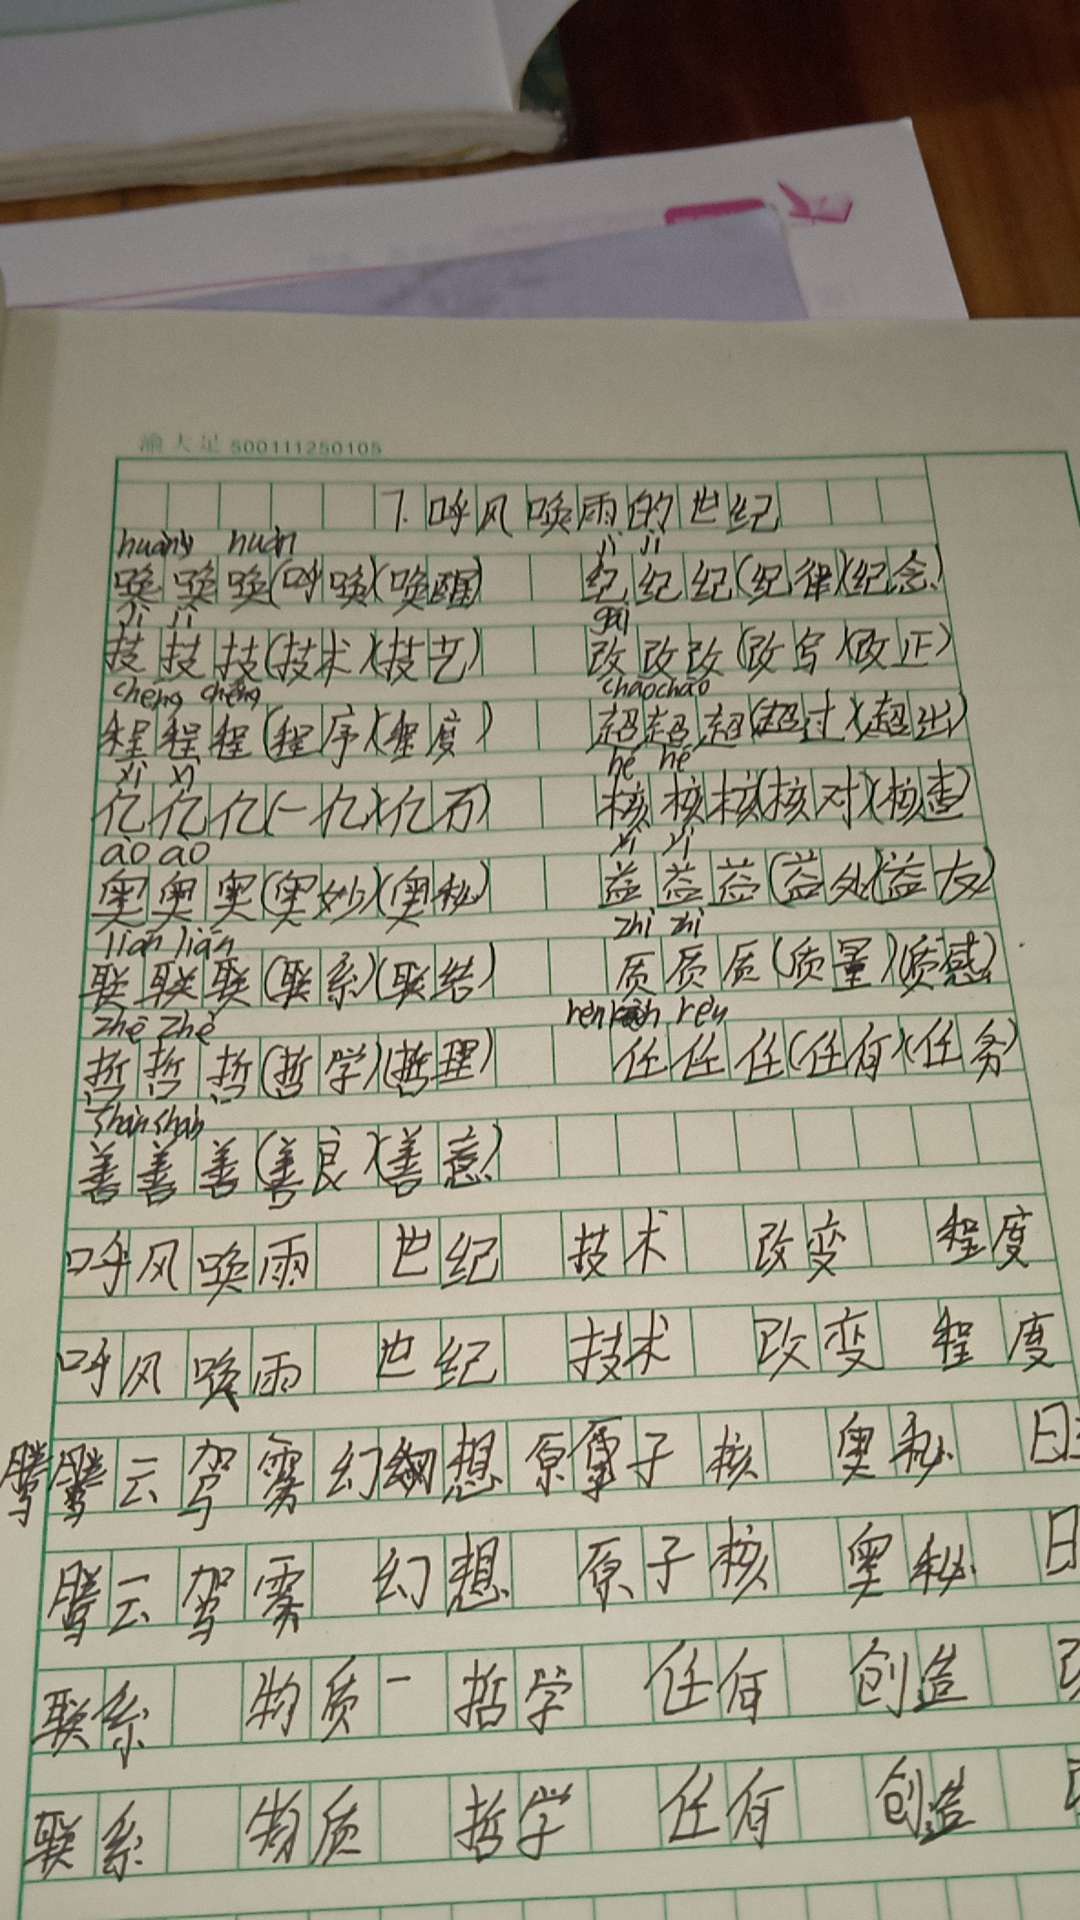 渝大足 500111250105
7.呼风唤雨的世纪
huàn huàn jì jì
唤唤唤(呼唤)(唤醒) 纪纪纪(纪律)(纪念)
jì jì gǎi
技技技(技术)(技艺) 改改改(改写)(改正)
chéng chéng chāo chāo
程程程(程序)(程度) 超超超(超过)(超出)
yì yì hé hé
亿亿亿(一亿)(亿万) 核核核(核对)(核查)
ào ào yì yì
奥奥奥(奥妙)(奥秘) 益益益(益处)(益友)
lián lián zhì zhì
联联联(联系)(联结) 质质质(质量)(质感)
zhé zhé rèn rèn
哲哲哲(哲学)(哲理) 任任任(任何)(任务)
shàn shàn
善善善(善良)(善意)
呼风唤雨 世纪 技术 改变 程度
呼风唤雨 世纪 技术 改变 程度
腾腾云驾雾幻想原子核 奥秘 日
腾云驾雾 幻想 原子核 奥秘 日
联系 物质 哲学 任何 创造 改
联系 物质 哲学 任何 创造